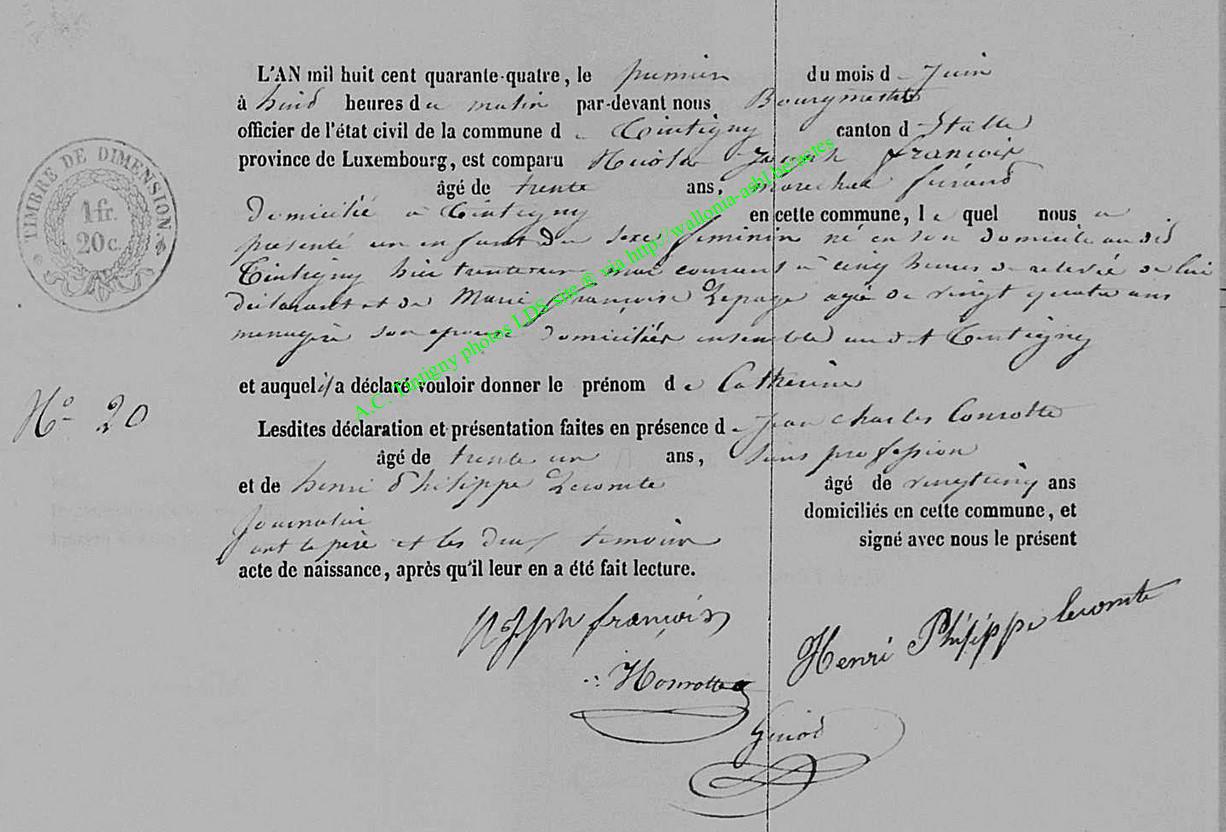 L'AN mil huit cent quarante-quatre, le premier du mois de Juin
à huit heures du matin par-devant nous Bourgmestre
officier de l'état civil de la commune de Tintigny canton d'Etalle
province de Luxembourg, est comparu Nicolas Joseph françois
âgé de trente ans, marechal ferand
Domicilié à Tintigny en cette commune, lequel nous a
présenté un enfant du sexe féminin né en son domicile audit
Tintigny hier trente un mai courant à cinq heures de relevée de lui
déclarant et de Marie françoise Lepage agée de vingt quatre ans
menagère son epouse domiciliés ensemble audit Tintigny
et auquel il a déclaré vouloir donner le prénom de Catherine
Lesdites déclaration et présentation faites en présence de Jean Charles Conrotte
âgé de trente un ans, sans profession
et de henri Philippe Lecomte âgé de vingt cinq ans
Journalier domiciliés en cette commune, et
ont le père et les deux temoins signé avec nous le présent
acte de naissance, après qu'il leur en a été fait lecture.
N Jsph françois
Henri Philippe lecomte
TIMBRE DE DIMENSION
1 fr.
20 c.
N° 20
A.C. Tintigny photos LDS site @ via http://wallonia-asbl.be/actes